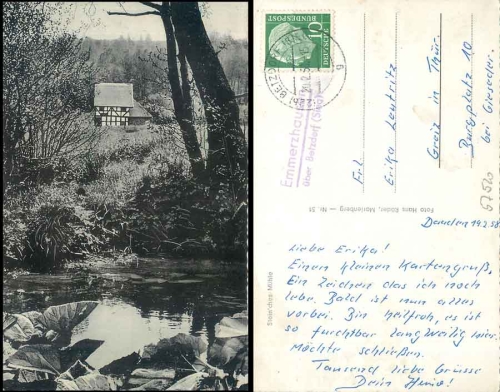 Steinches Mühle
10
DEUTSCHE
BUNDESPOST
BETZDORF
Emmerzhausen
über Betzdorf (Sieg)
Foto Hans Röder, Marienberg — Nr. 31
Frl.
Erika Leutritz
Greiz in Thür.
Burgplatz 10
bei Girsedler
57520
Daaden 19.2.58
Liebe Erika!
Einen kleinen Kartengruß,
Ein Zeichen das ich noch
lebe. Bald ist nun alles
vorbei. Bin heilfroh, es ist
so furchtbar langweilig hier
Möchte schließen.
Tausend liebe Grüsse
Dein